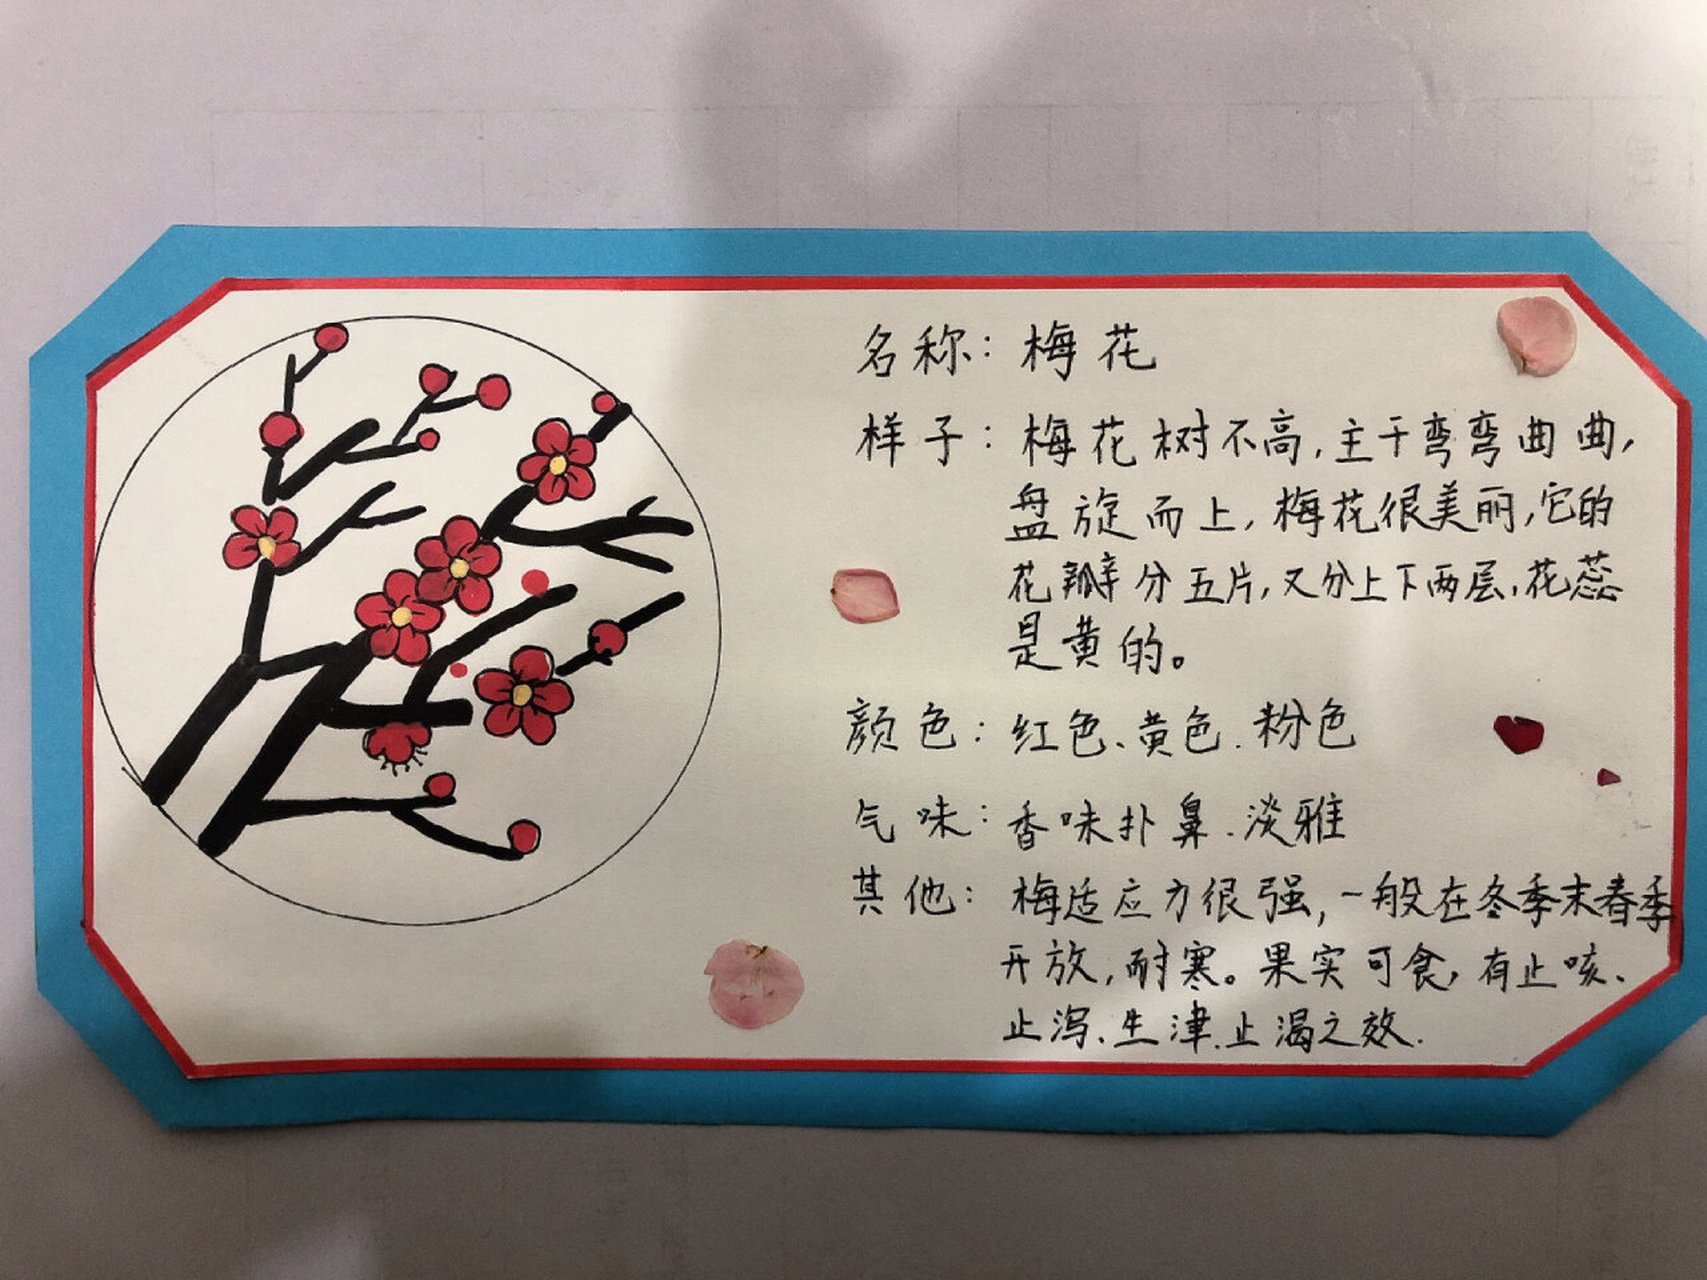 名称：梅花
样子：梅花树不高，主干弯弯曲曲，
盘旋而上，梅花很美丽，它的
花瓣分五片，又分上下两层，花蕊
是黄的。
颜色：红色、黄色、粉色
气味：香味扑鼻、淡雅
其他：梅适应力很强，一般在冬季末春季
开放，耐寒。果实可食，有止咳、
止泻、生津、止渴之效.